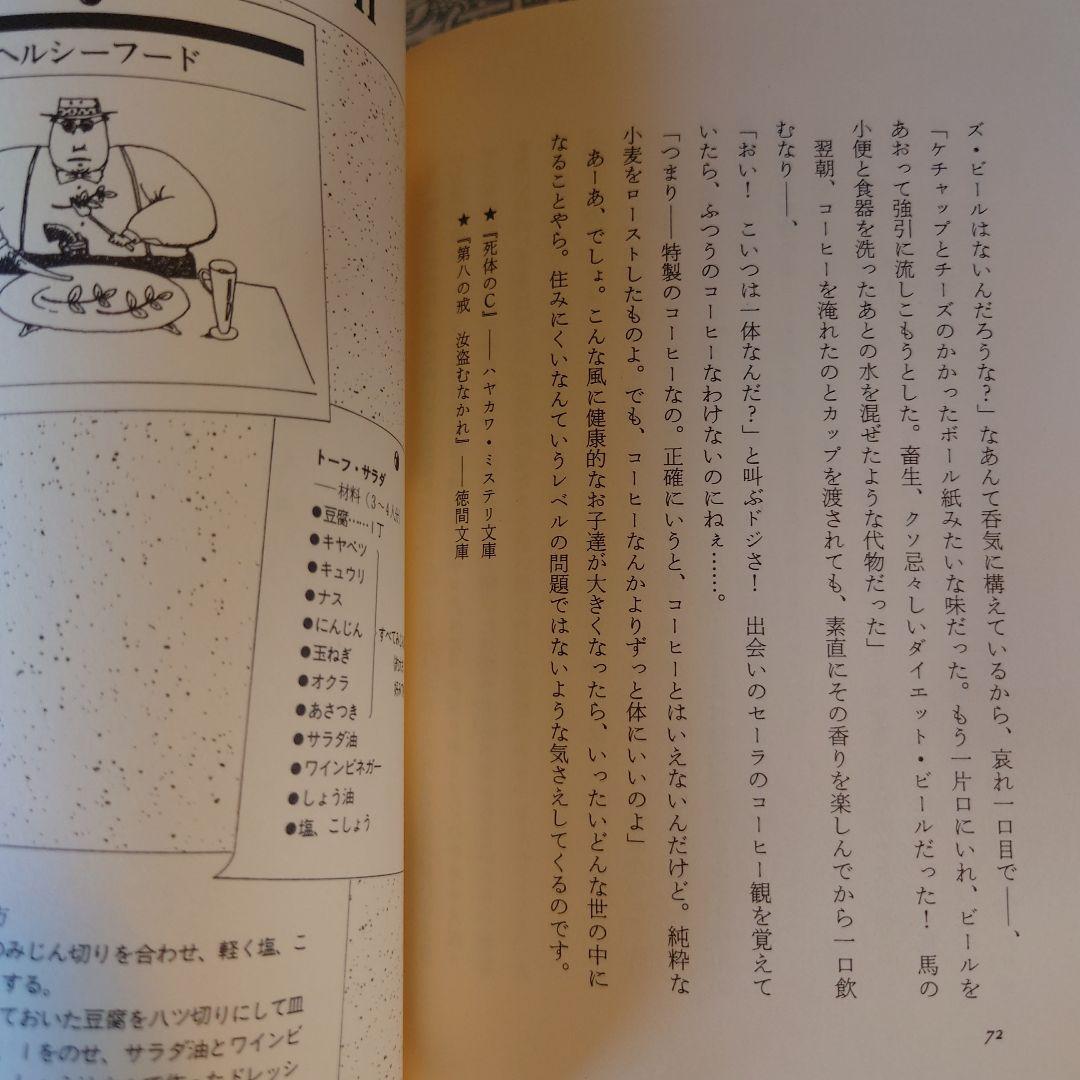 ズ・ビールはないんだろうな？」なあんて呑気に構えているから、哀れ一口目で――、
「ケチャップとチーズのかかったボール紙みたいな味だった。もう一片口にいれ、ビールを
あおって強引に流しこもうとした。畜生、クソ忌々しいダイエット・ビールだった！　馬の
小便と食器を洗ったあとの水を混ぜたような代物だった」
翌朝、コーヒーを淹れたのとカップを渡されても、素直にその香りを楽しんでから一口飲
むなり――、
「おい！　こいつは一体なんだ？」と叫ぶドジさ！　出会いのセーラのコーヒー観を覚えて
いたら、ふつうのコーヒーなわけないのにねぇ……。
「つまり――特製のコーヒーなの。正確にいうと、コーヒーとはいえないんだけど。純粋な
小麦をローストしたものよ。でも、コーヒーなんかよりずっと体にいいのよ」
あーあ、でしょ。こんな風に健康的なお子達が大きくなったら、いったいどんな世の中に
なることやら。住みにくいなんていうレベルの問題ではないような気さえしてくるのです。
★『死体のC』――ハヤカワ・ミステリ文庫
★『第八の戒　汝盗むなかれ』――徳間文庫
72
ヘルシーフード
トーフ・サラダ
――材料（3〜4人分）
●豆腐……1丁
●キャベツ
●キュウリ
●ナス
●にんじん
●玉ねぎ
●オクラ
●あさつき
●サラダ油
●ワインビネガー
●しょう油
●塩、こしょう
のみじん切りを合わせ、軽く塩、こ
する。
ておいた豆腐を八ツ切りにして皿
をのせ、サラダ油とワインビ